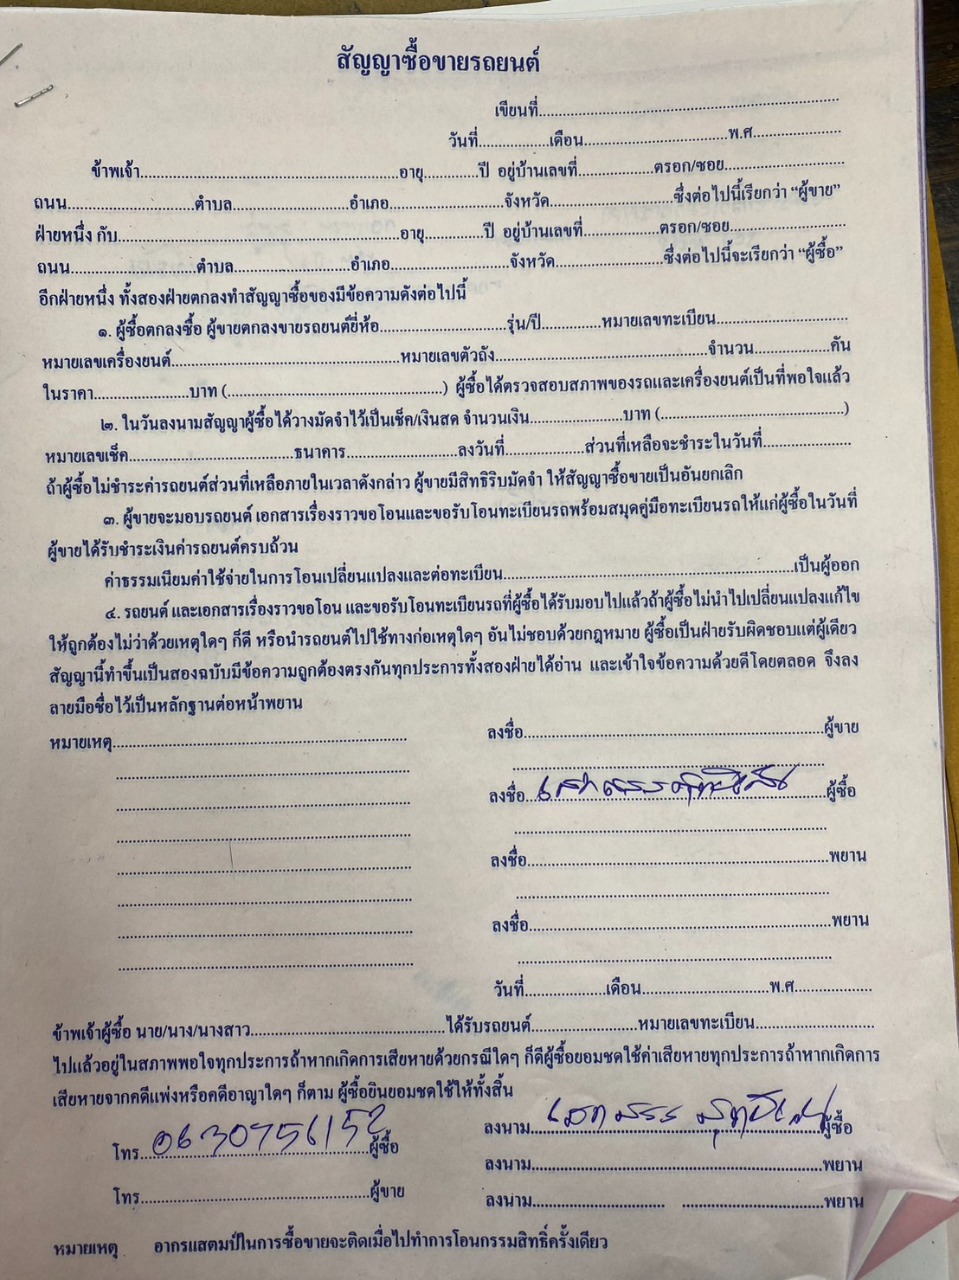 สัญญาซื้อขายรถยนต์
เขียนที่..........
วันที่..........เดือน..........พ.ศ..........
ข้าพเจ้า..........อายุ..........ปี อยู่บ้านเลขที่..........ตรอก/ซอย..........
ถนน..........ตำบล..........อำเภอ..........จังหวัด..........ซึ่งต่อไปนี้เรียกว่า “ผู้ขาย”
ฝ่ายหนึ่ง กับ..........อายุ..........ปี อยู่บ้านเลขที่..........ตรอก/ซอย..........
ถนน..........ตำบล..........อำเภอ..........จังหวัด..........ซึ่งต่อไปนี้จะเรียกว่า “ผู้ซื้อ”
อีกฝ่ายหนึ่ง ทั้งสองฝ่ายตกลงทำสัญญาซื้อของมีข้อความดังต่อไปนี้
๑. ผู้ซื้อตกลงซื้อ ผู้ขายตกลงขายรถยนต์ยี่ห้อ..........รุ่น/ปี..........หมายเลขทะเบียน..........
หมายเลขเครื่องยนต์..........หมายเลขตัวถัง..........จำนวน..........คัน
ในราคา..........บาท (..........) ผู้ซื้อได้ตรวจสอบสภาพของรถและเครื่องยนต์เป็นที่พอใจแล้ว
๒. ในวันลงนามสัญญาผู้ซื้อได้วางมัดจำไว้เป็นเช็ค/เงินสด จำนวนเงิน..........บาท (..........)
หมายเลขเช็ค..........ธนาคาร..........ลงวันที่..........ส่วนที่เหลือจะชำระในวันที่..........
ถ้าผู้ซื้อไม่ชำระค่ารถยนต์ส่วนที่เหลือภายในเวลาดังกล่าว ผู้ขายมีสิทธิริบมัดจำ ให้สัญญาซื้อขายเป็นอันยกเลิก
๓. ผู้ขายจะมอบรถยนต์ เอกสารเรื่องราวขอโอนและขอรับโอนทะเบียนรถพร้อมสมุดคู่มือทะเบียนรถให้แก่ผู้ซื้อในวันที่
ผู้ขายได้รับชำระเงินค่ารถยนต์ครบถ้วน
ค่าธรรมเนียมค่าใช้จ่ายในการโอนเปลี่ยนแปลงและต่อทะเบียน..........เป็นผู้ออก
๔. รถยนต์ และเอกสารเรื่องราวขอโอน และขอรับโอนทะเบียนรถที่ผู้ซื้อได้รับมอบไปแล้วถ้าผู้ซื้อไม่นำไปเปลี่ยนแปลงแก้ไข
ให้ถูกต้องไม่ว่าด้วยเหตุใดๆ ก็ดี หรือนำรถยนต์ไปใช้ทางก่อเหตุใดๆ อันไม่ชอบด้วยกฎหมาย ผู้ซื้อเป็นฝ่ายรับผิดชอบแต่ผู้เดียว
สัญญานี้ทำขึ้นเป็นสองฉบับมีข้อความถูกต้องตรงกันทุกประการทั้งสองฝ่ายได้อ่าน และเข้าใจข้อความด้วยดีโดยตลอด จึงลง
ลายมือชื่อไว้เป็นหลักฐานต่อหน้าพยาน
หมายเหตุ..........
ลงชื่อ..........ผู้ขาย
ลงชื่อ..........ผู้ซื้อ
ลงชื่อ..........พยาน
ลงชื่อ..........พยาน
วันที่..........เดือน..........พ.ศ..........
ข้าพเจ้าผู้ซื้อ นาย/นาง/นางสาว..........ได้รับรถยนต์..........หมายเลขทะเบียน..........
ไปแล้วอยู่ในสภาพพอใจทุกประการถ้าหากเกิดการเสียหายด้วยกรณีใดๆ ก็ดีผู้ซื้อยอมชดใช้ค่าเสียหายทุกประการถ้าหากเกิดการ
เสียหายจากคดีแพ่งหรือคดีอาญาใดๆ ก็ตาม ผู้ซื้อยินยอมชดใช้ให้ทั้งสิ้น
โทร. 0630756152 ผู้ซื้อ
ลงนาม..........ผู้ซื้อ
ลงนาม..........พยาน
โทร..........ผู้ขาย
ลงนาม..........พยาน
หมายเหตุ อากรแสตมป์ในการซื้อขายจะติดเมื่อไปทำการโอนกรรมสิทธิ์ครั้งเดียว